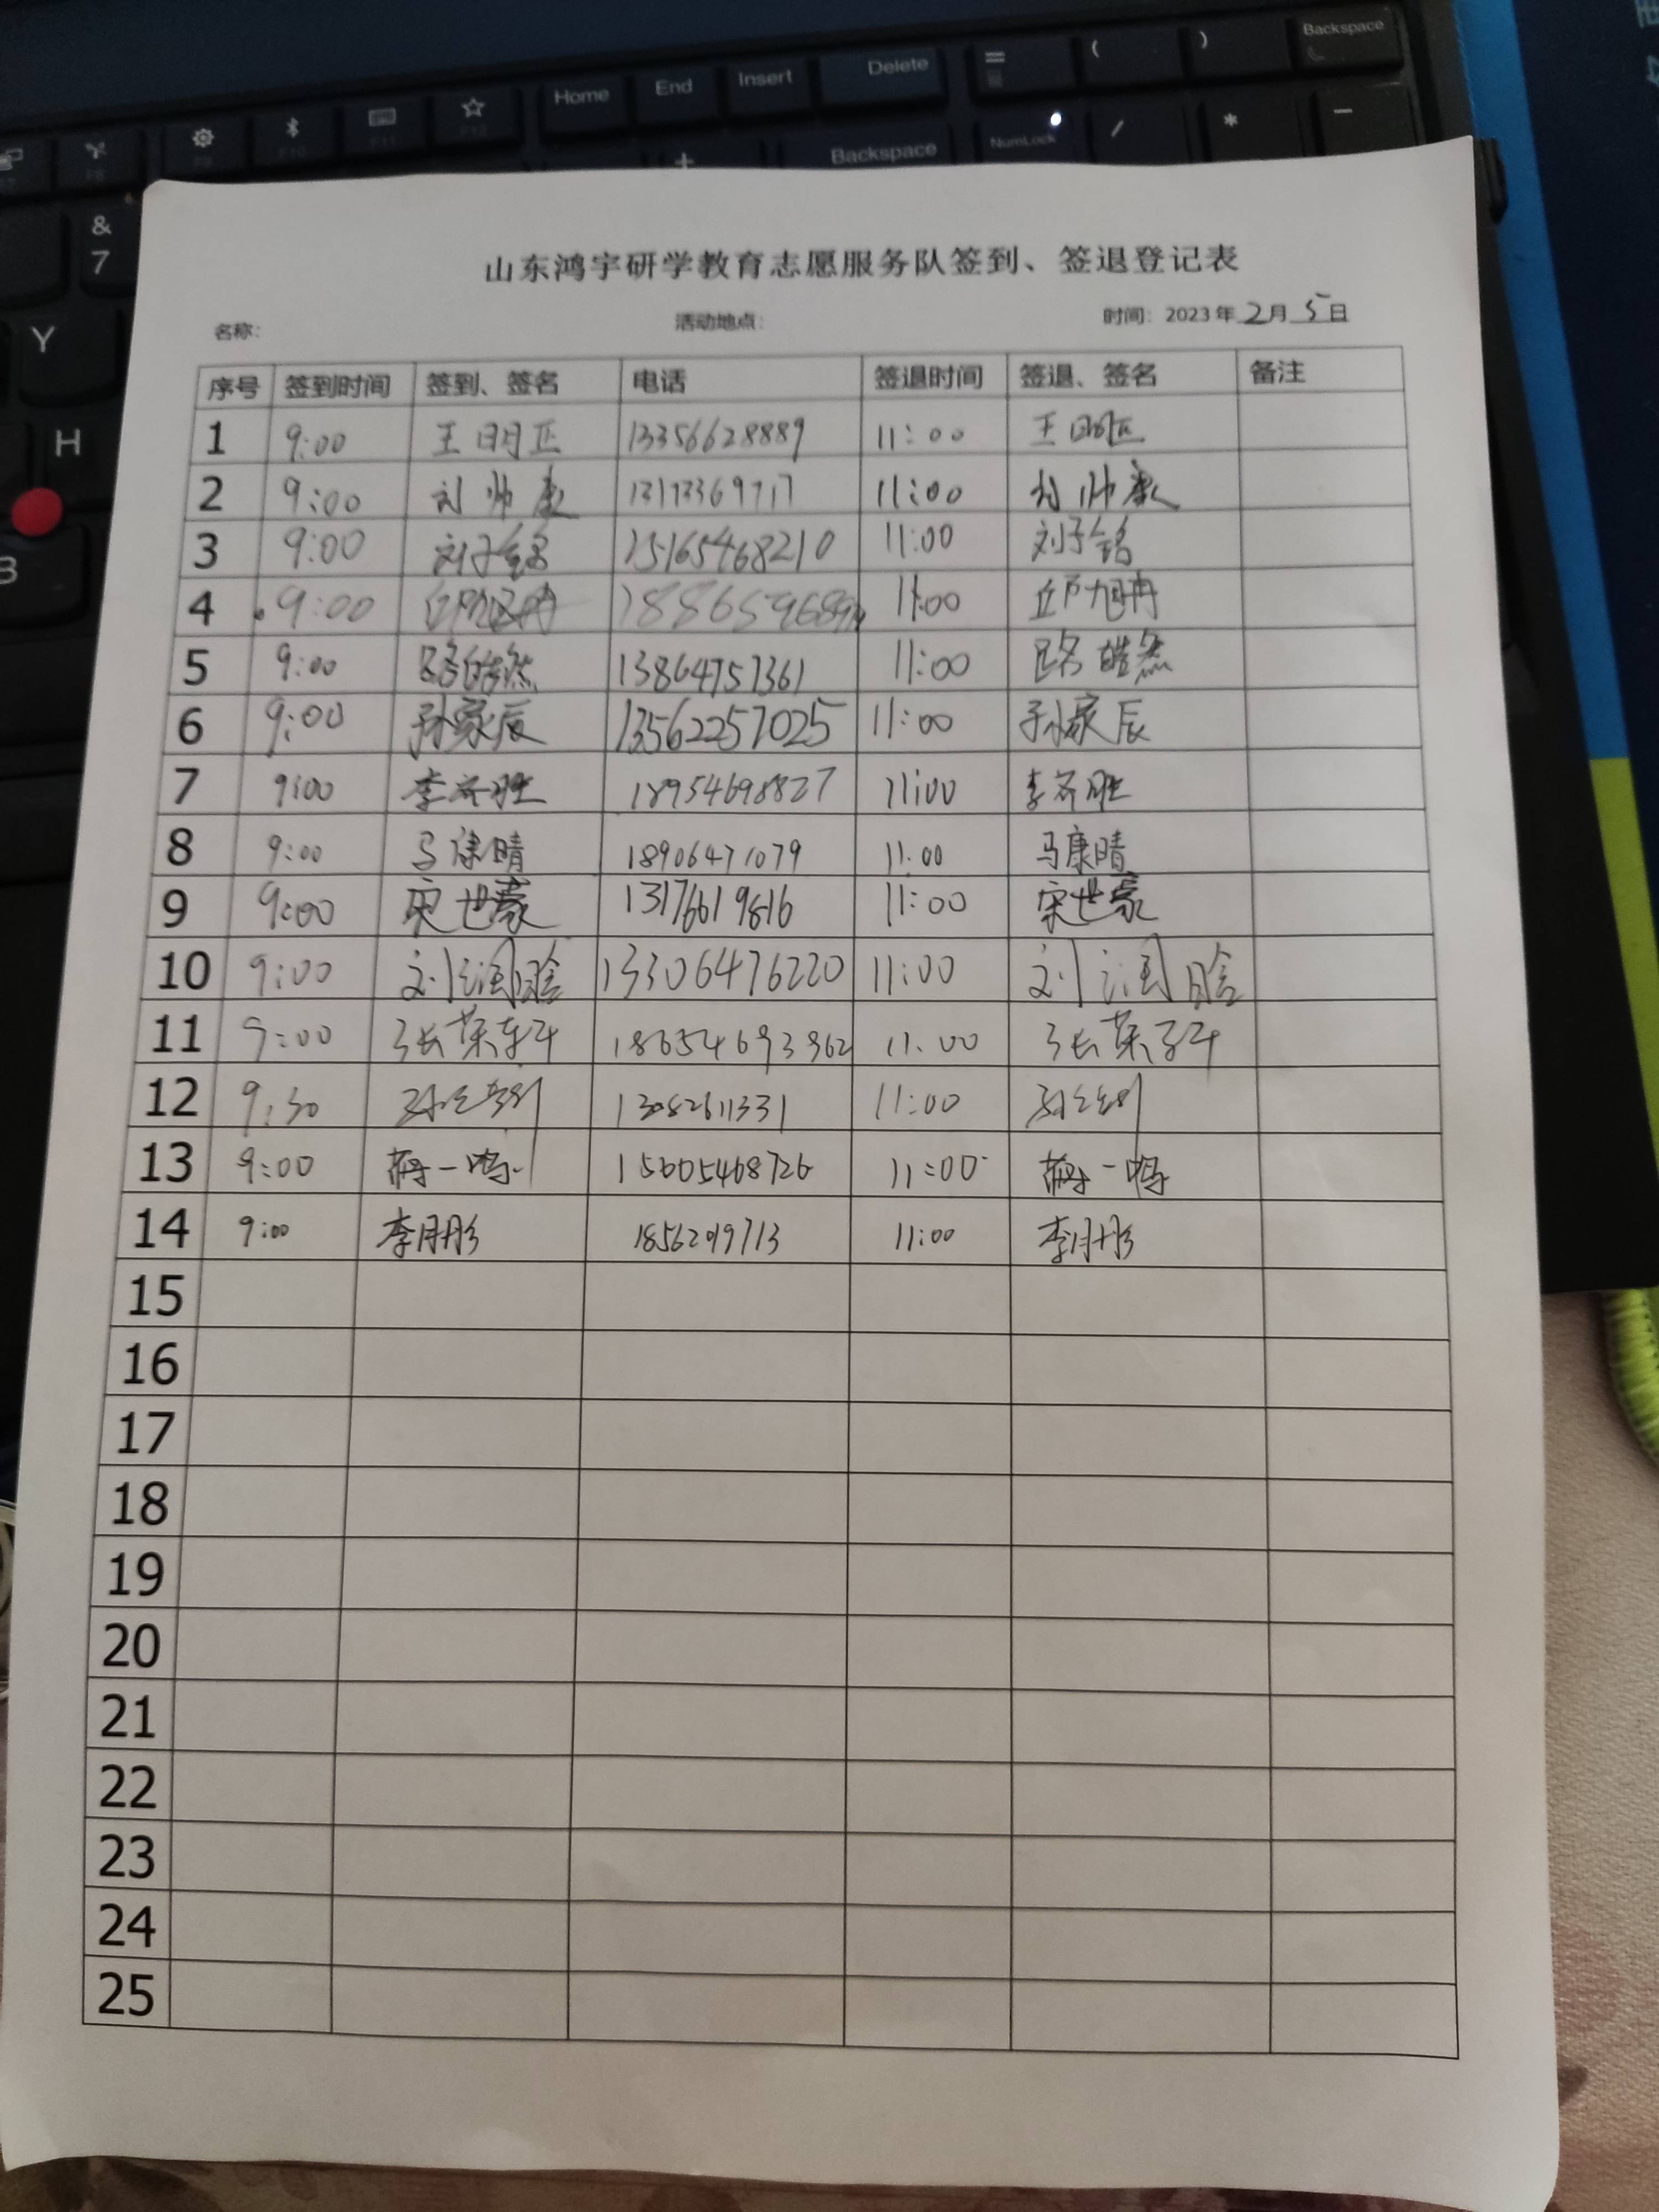 Home End Insert Delete = ( ) Backspace
F9 F10 F11 F12 + Backspace NumLock / * -
&
7
Y
H
B
山东鸿宇研学教育志愿服务队签到、签退登记表
名称: 活动地点: 时间: 2023年2月5日
序号 签到时间 签到、签名 电话 签退时间 签退、签名 备注
1 9:00 王明正 13356628889 11:00 王明正
2 9:00 刘帅康 11:00 刘帅康
3 9:00 刘子铭 15165468210 11:00 刘子铭
4 9:00 11:00
5 9:00 路皓然 13864757361 11:00 路皓然
6 9:00 孙家辰 13562257025 11:00 孙家辰
7 9:00 李齐胜 18954698827 11:00 李齐胜
8 9:00 马康晴 18906471079 11:00 马康晴
9 9:00 宋世豪 13176619816 11:00 宋世豪
10 9:00 刘润晗 13306476220 11:00 刘润晗
11 9:00 张 11:00 张
12 9:30 11:00
13 9:00 薛一鸣 15605468726 11:00 薛一鸣
14 9:00 李月彤 11:00 李月彤
15
16
17
18
19
20
21
22
23
24
25